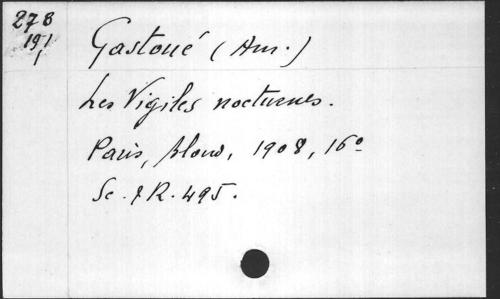 278
191
1
Gastoué (Am.)
Les Vigiles nocturnes.
Paris, Bloud, 1908, 16º
Sc. & R. 495.